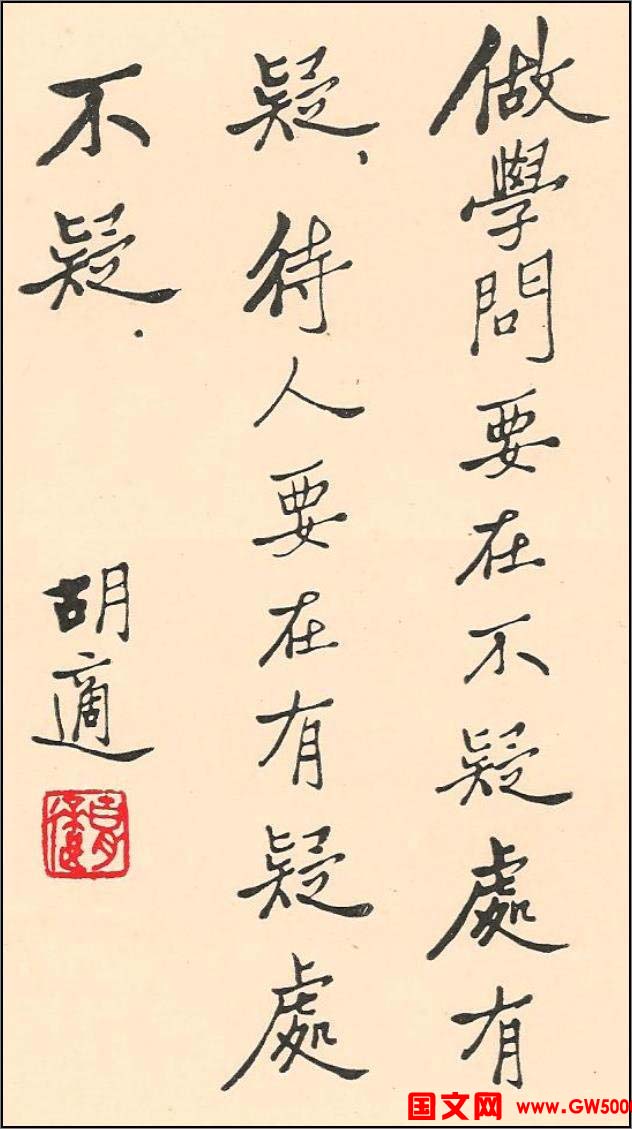 做學問要在不疑處有
疑，待人要在有疑處
不疑．
胡適
国文网 www.GW500